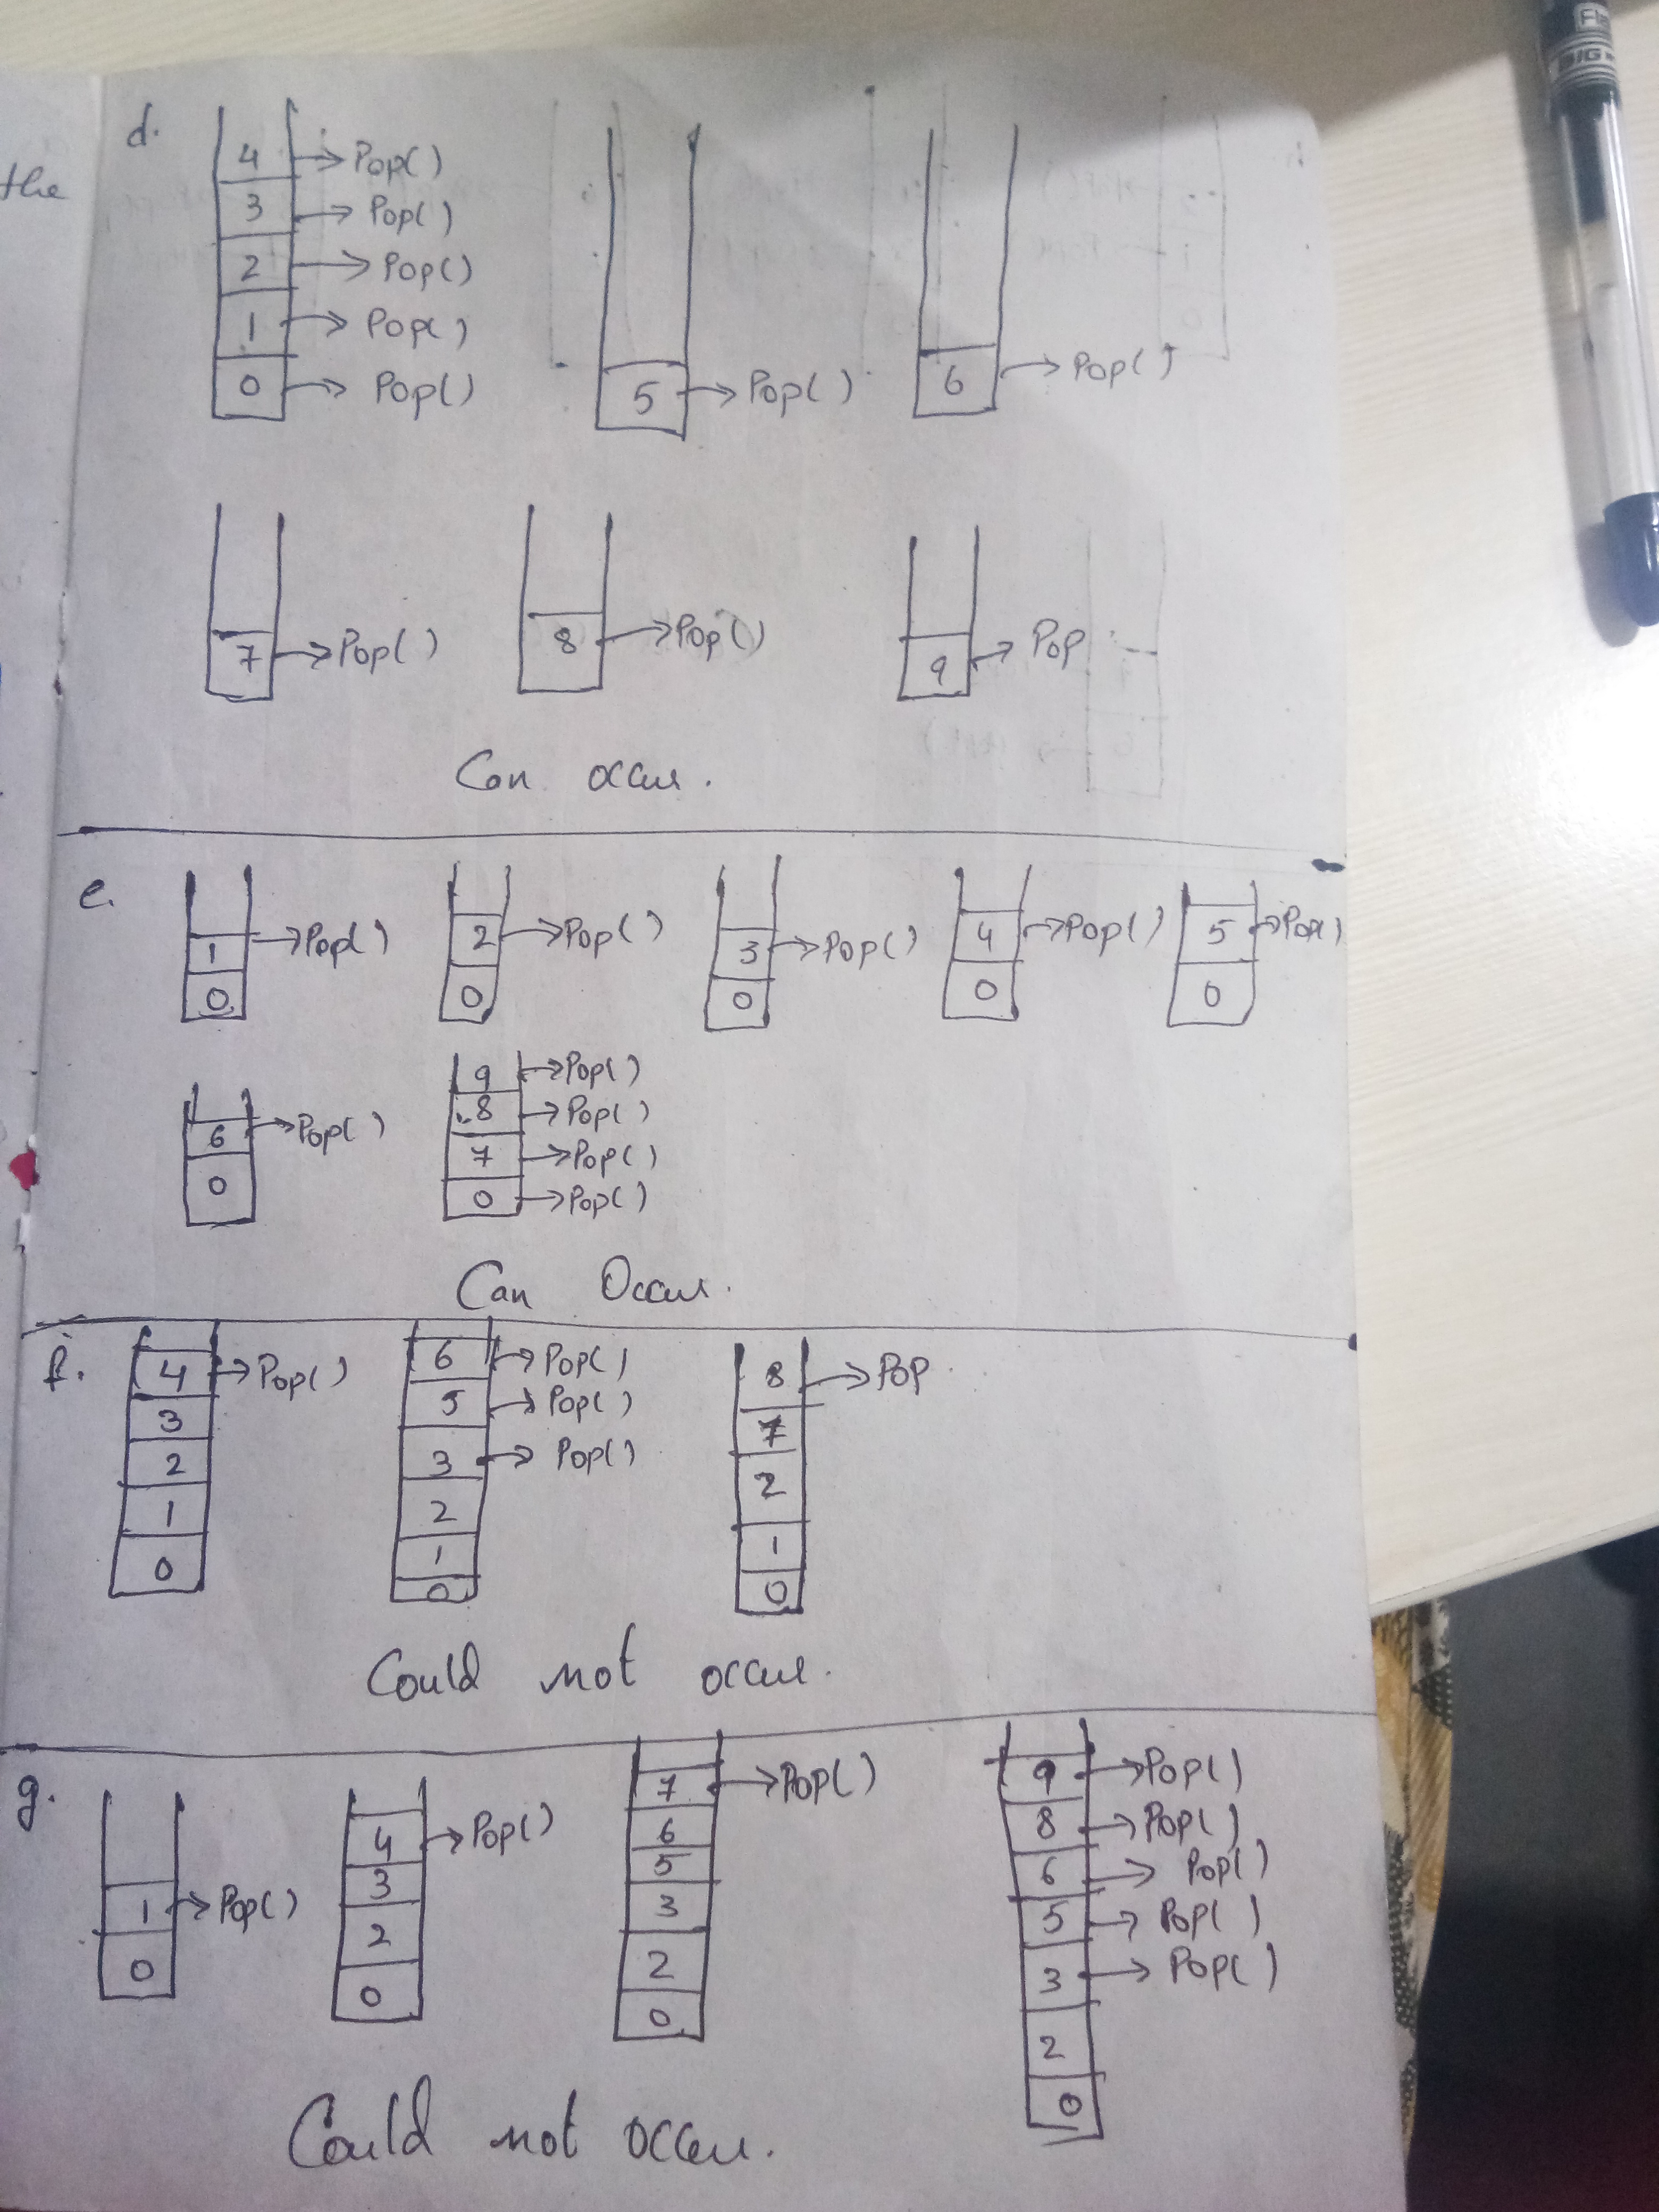 the
d.
4 → Pop()
3 → Pop()
2 → Pop()
1 → Pop()
0 → Pop()
5 → Pop()
6 → Pop()
7 → Pop()
8 → Pop()
9 → Pop
Can occur.
e.
1 → Pop()
0
2 → Pop()
0
3 → Pop()
0
4 → Pop()
0
5 → Pop()
0
6 → Pop()
0
9 → Pop()
8 → Pop()
7 → Pop()
0 → Pop()
Can Occur.
f.
4 → Pop()
3
2
1
0
6 → Pop()
5 → Pop()
3 → Pop()
2
1
0
8 → Pop
7
2
1
0
Could not occur.
g.
1 → Pop()
0
4 → Pop()
3
2
0
7 → Pop()
6
5
3
2
0
9 → Pop()
8 → Pop()
6 → Pop()
5 → Pop()
3 → Pop()
2
0
Could not occur.